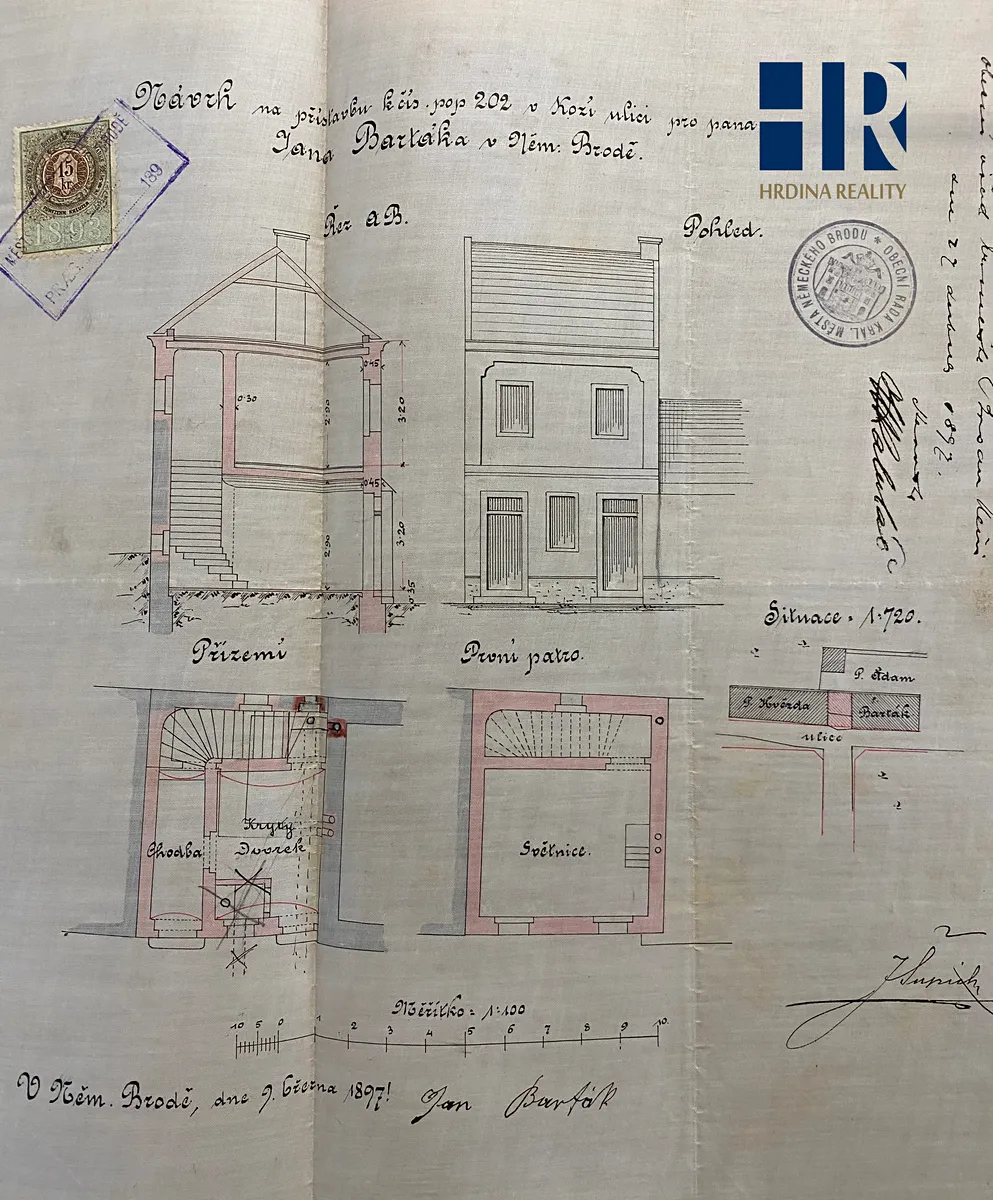 Návrh na přístavbu k čís. pop 202 v Kozí ulici pro pana
Jana Bartáka v Něm: Brodě.
HR
HRDINA REALITY
15
kr
1893
BRODĚ
189
Řez AB.
Pohled.
OBECNÍ RADA KRÁL. MĚSTA NĚMECKÉHO BRODU *
dne 27 dubna 1897.
0·45
0·30
2·90
3·20
0·45
2·90
3·20
0·35
Přízemí
První patro.
Situace = 1:720.
P. Adam
P. Hvězda
Barták
ulice
Chodba
Krytý
Dvorek
Světnice.
Měřítko = 1:100
10 5 0 1 2 3 4 5 6 7 8 9 10.
V Něm. Brodě, dne 9. března 1897!
Jan Barták